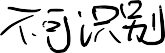 不可识别